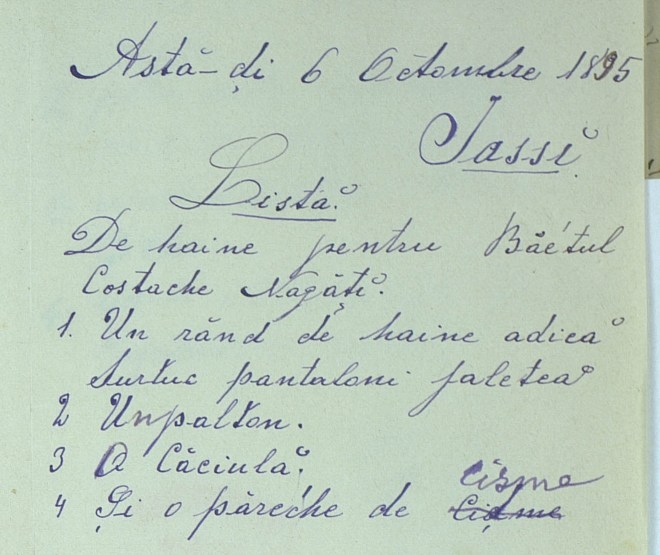 Astă-ḑi 6 Octombre 1895
Iassi
Lista
De haine pentru Băétul
Costache Nagăți.
1. Un rănd de haine adica
surtuc pantaloni jaletea
2 Unpalton.
3 O Căciula.
4 Și o părech̕e de cisme